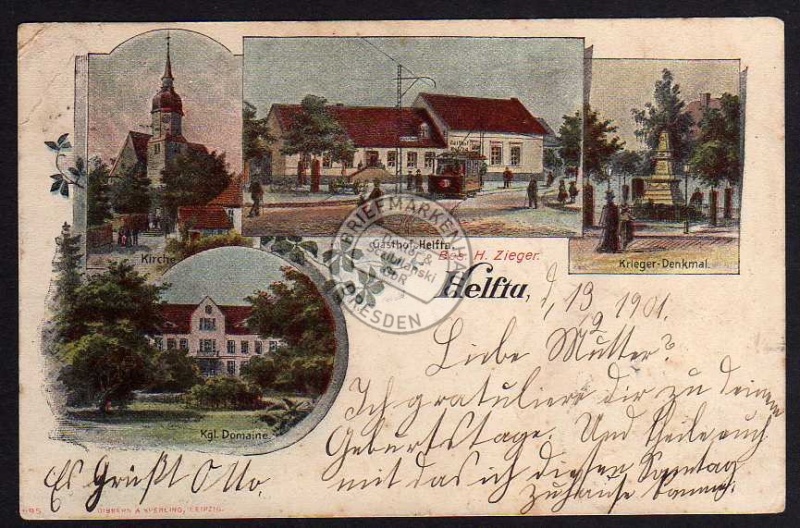 Kirche
Gasthof Helfta.
Bes. H. Zieger.
Krieger-Denkmal.
Kgl. Domaine.
Helfta, d, 13 1901.
9
Liebe Mutter?
Ich gratuliere dir zu deinem
Geburtstage. Und theile euch
mit das ich diesen Sonntag
zuhause komme.
Es Grüßt Otto.
BRIEFMARKEN
DRESDEN